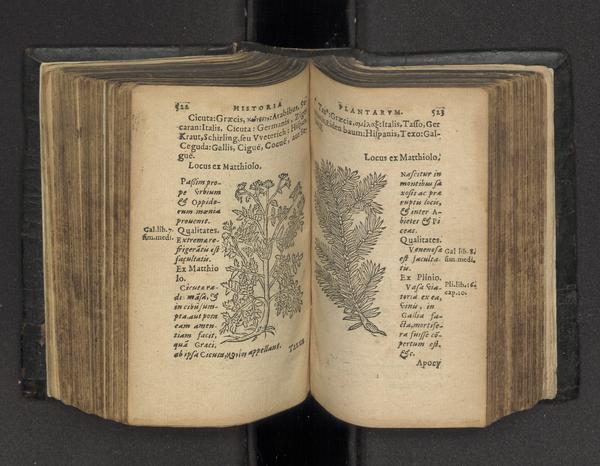 522 HISTORIA
Cicuta: Græcis, κώνειον: Arabibus,
caran: Italis, Cicuta: Germanis,
Kraut, Schirling, seu Vveterich: Hispanis
Ceguda: Gallis, Ciguë, Cocuë,
guë.
Locus ex Matthiolo.
Passim pro-
pe vrbium
& Oppido-
rum mœnia
prouenit.
Gal. lib. 7.
sim. medi.
Qualitates.
Extremæ re-
frigerātis est
facultatis.
Ex Matthio
lo.
Cicutæ ra-
di: māsa, &
in cibū sum-
pta, aut pota
eam amen-
tiam facit,
quā Græci,
ab ipsa Cicuta, appellant.
Taxus
PLANTARVM. 523
Græcis, σμίλαξ: Italis, Tasso, Ger
Eiden baum: Hispanis, Texo: Gal-
Locus ex Matthiolo.
Nascitur in
montibus sa
xosis ac præ
ruptis locis,
& inter A-
bietes & Pi
ceas.
Qualitates.
Venenosæ
est faculta-
tis.
Gal lib. 8.
sim. medi.
Ex Plinio.
Vasa via-
toria ex ea,
vinis, in
Gallia fa-
cta, mortife-
ra fuisse cō-
pertum est,
&c.
Pli. lib. 16.
cap. 10.
Apocy